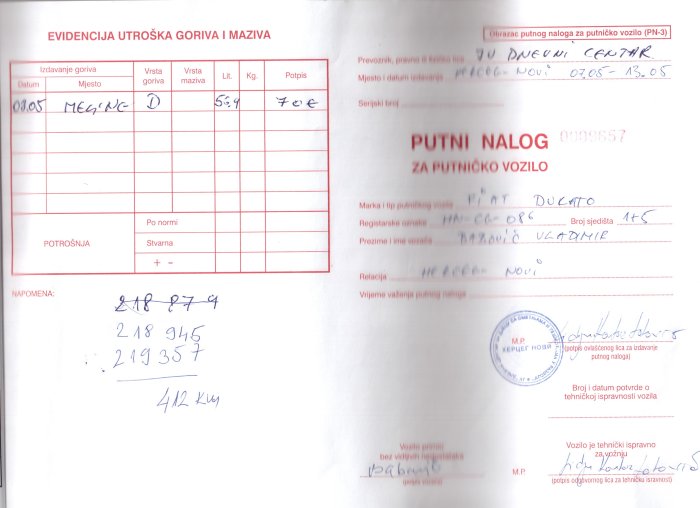 EVIDENCIJA UTROŠKA GORIVA I MAZIVA
Izdavanje goriva
Datum
Mjesto
Vrsta goriva
Vrsta maziva
Lit.
Kg.
Potpis
MELJINE D 70€
POTROŠNJA
Po normi
Stvarna
+ -
NAPOMENA:
218 879
218 945
219 357
412 KM
Obrazac putnog naloga za putničko vozilo (PN-3)
Prevoznik, pravno ili fizičko lice JU DNEVNI CENTAR
Mjesto i datum izdavanja HERCEG-NOVI 07.05-13.05
Serijski broj
PUTNI NALOG
ZA PUTNIČKO VOZILO
Marka i tip putničkog vozila FIAT DUCATO
Registarske oznake HN-CG-086 Broj sjedišta 1+5
Prezime i ime vozača VLADIMIR
Relacija HERCEG-NOVI
Vrijeme važenja putnog naloga
ХЕРЦЕГ НОВИ
M.P.
(potpis ovlašćenog lica za izdavanje
putnog naloga)
Broj i datum potvrde o
tehničkoj ispravnosti vozila
Vozilo primio
bez vidljivih nedostataka
(potpis vozača)
M.P.
Vozilo je tehnički ispravno
za vožnju
(potpis odgovornog lica za tehničku isravnost)